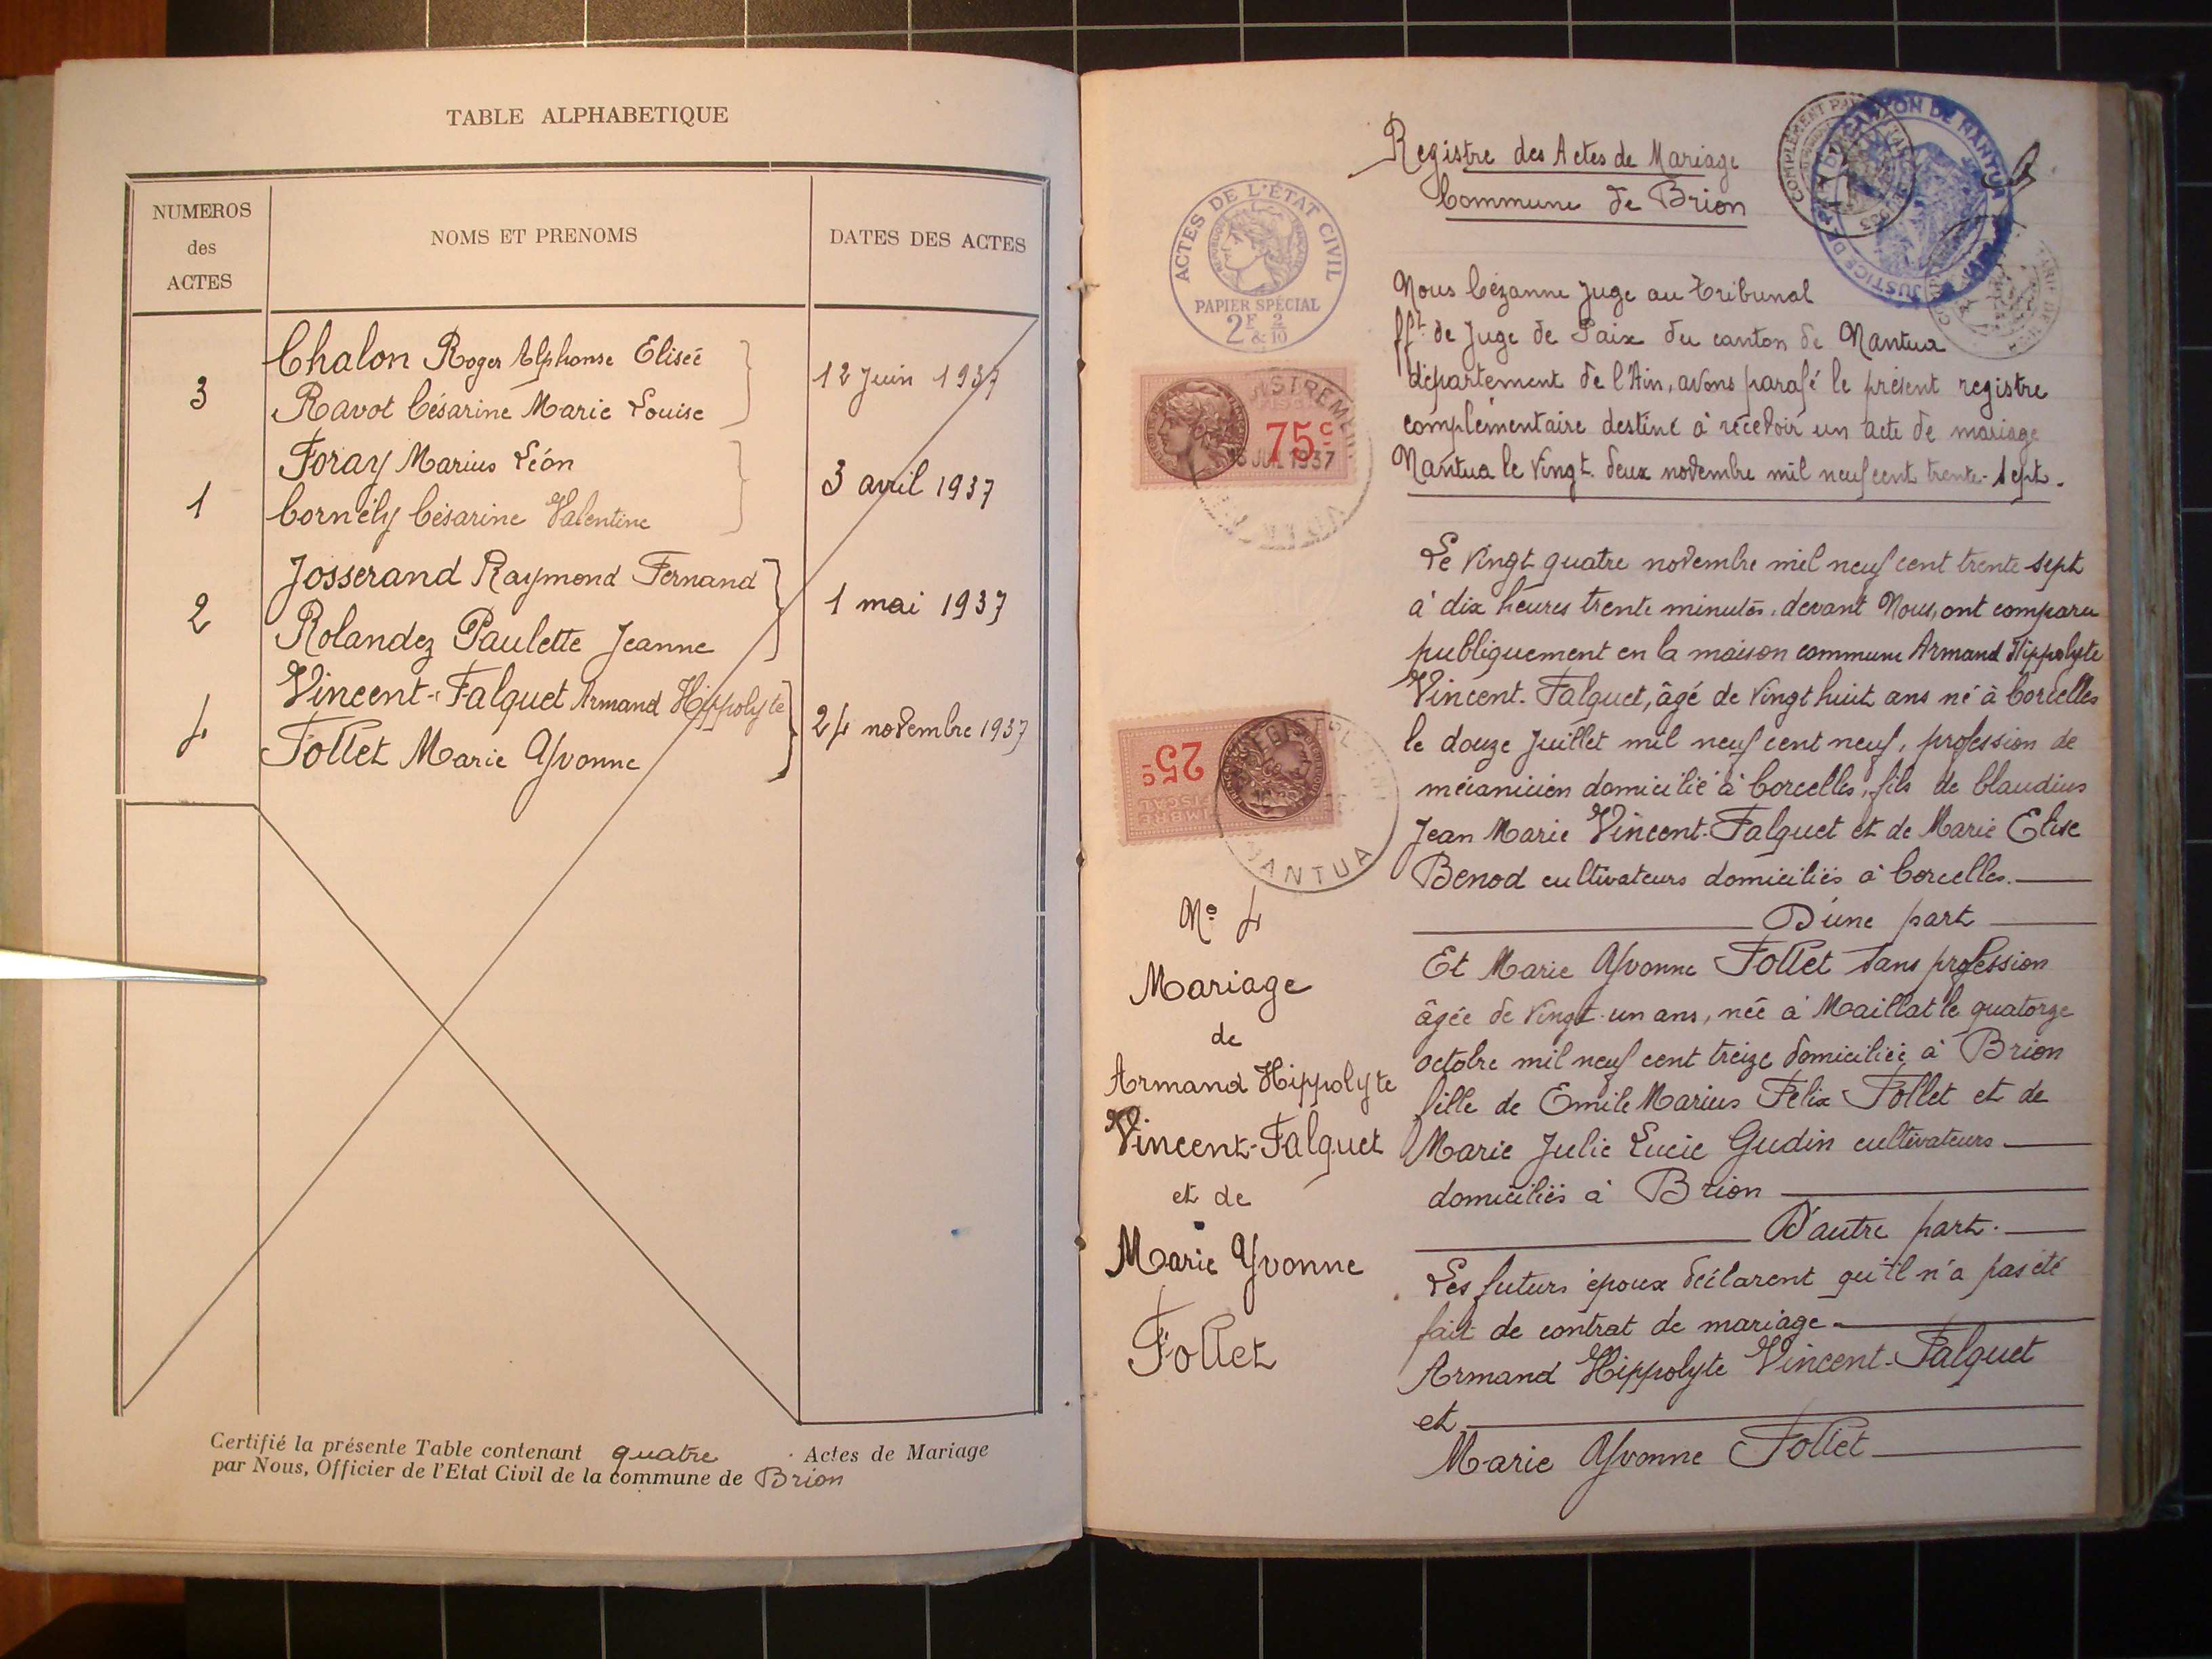 TABLE ALPHABETIQUE
NUMEROS
des
ACTES
NOMS ET PRENOMS
DATES DES ACTES
Chalon Roger Alphonse Eliseé
3
Ravot Césarine Marie Louise
12 Juin 1937
Foray Marius Léon
1
Cornély Césarine Valentine
3 avril 1937
Josserand Raymond Fernand
2
Rolandez Paulette Jeanne
1 mai 1937
Vincent-Falquet Armand Hippolyte
4
Follet Marie Yvonne
24 novembre 1937
Certifié la présente Table contenant quatre Actes de Mariage
par Nous, Officier de l'Etat Civil de la commune de Brion
Registre des Actes de Mariage
Commune de Brion
ACTES DE L'ÉTAT CIVIL
PAPIER SPÉCIAL
2F & 2/10
75c
JUIL 1937
25c
NANTUA
Nous Cézanne Juge au Tribunal
fft de Juge de Paix du canton de Nantua
département de l'Ain, avons parafé le présent registre
complémentaire destiné à recevoir un acte de mariage
Nantua le vingt-deux novembre mil neuf cent trente-sept.
Le vingt quatre novembre mil neuf cent trente sept
à dix heures trente minutes, devant Nous, ont comparu
publiquement en la maison commune Armand Hippolyte
Vincent-Falquet, âgé de vingt huit ans né à Corcelles
le douze Juillet mil neuf cent neuf, profession de
mécanicien domicilié à Corcelles, fils de Claudius
Jean Marie Vincent-Falquet et de Marie Elise
Benod cultivateurs domiciliés à Corcelles.
D'une part
Et Marie Yvonne Follet sans profession
âgée de vingt-un ans, née à Maillat le quatorze
octobre mil neuf cent treize domiciliée à Brion
fille de Emile Marius Félix Follet et de
Marie Julie Lucie Gudin cultivateurs
domiciliés à Brion
D'autre part.
Les futurs époux déclarent qu'il n'a pas été
fait de contrat de mariage
Armand Hippolyte Vincent-Falquet
et
Marie Yvonne Follet
No 4
Mariage
de
Armand Hippolyte
Vincent-Falquet
et de
Marie Yvonne
Follet